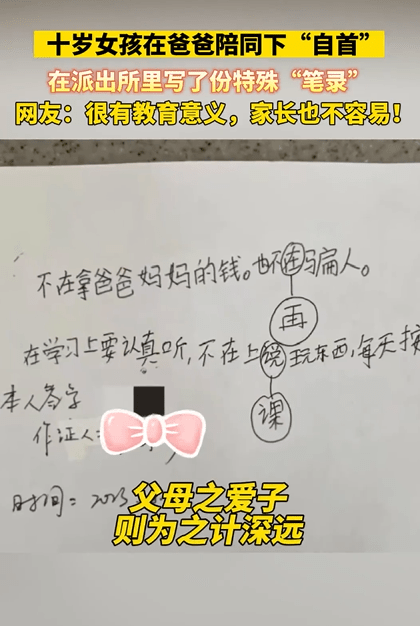 十岁女孩在爸爸陪同下“自首”
在派出所里写了份特殊“笔录”
网友：很有教育意义，家长也不容易！
不在拿爸爸妈妈的钱。也不在骗人。
再
在学习上要认真听，不在上说玩东西，每天按
课
本人签字
作证人：
时间：2023
父母之爱子
则为之计深远